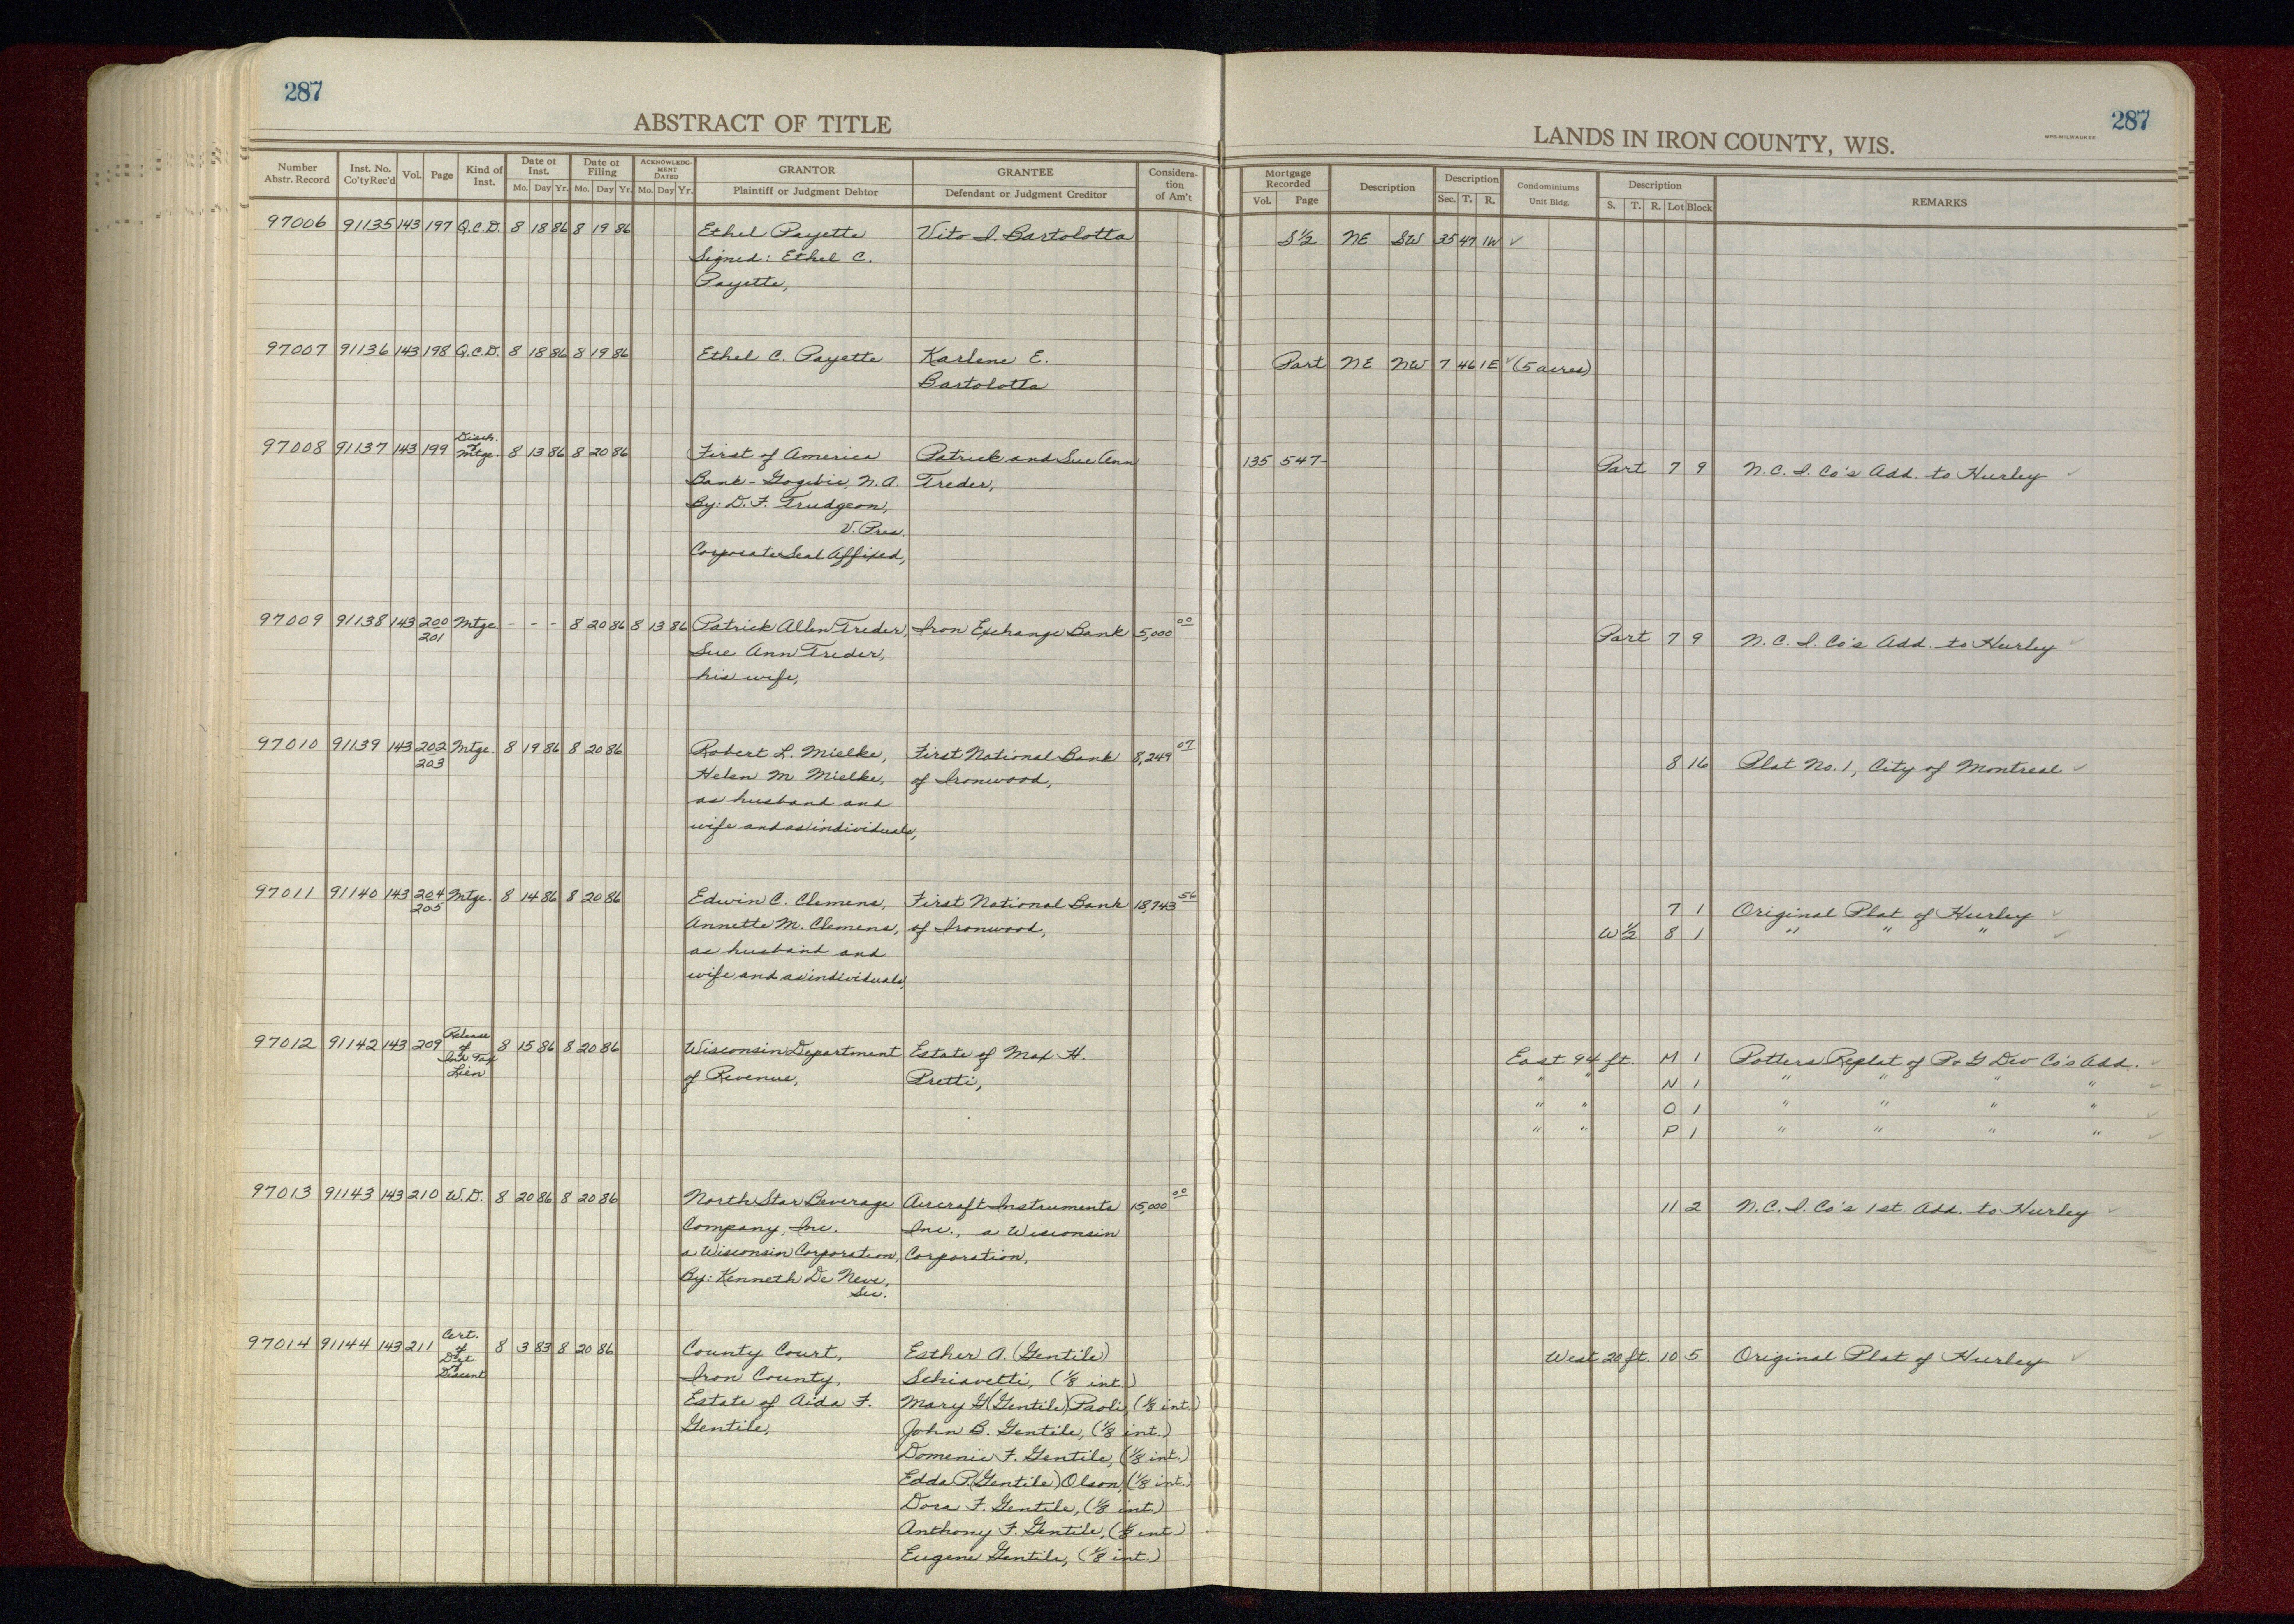 287
ABSTRACT OF TITLE
Number Abstr. Record | Inst. No. Co'ty Rec'd | Vol. | Page | Kind of Inst. | Date of Inst. Mo. Day Yr. | Date of Filing Mo. Day Yr. | ACKNOWLEDGMENT DATED Mo. Day Yr. | GRANTOR Plaintiff or Judgment Debtor | GRANTEE Defendant or Judgment Creditor | Consideration of Am't
97006 91135 143 197 Q.C.D. 8 18 86 8 19 86 Ethel Payette Vito I. Bartolotta
Signed: Ethel C.
Payette,
97007 91136 143 198 Q.C.D. 8 18 86 8 19 86 Ethel C. Payette Karlene E.
Bartolotta
97008 91137 143 199 Disch. of Mtge. 8 13 86 8 20 86 First of America Patrick and Sue Ann
Bank - Gogebic, N.A. Treder,
By: D.F. Trudgeon,
V. Pres.
Corporate Seal Affixed,
97009 91138 143 200 201 Mtge. - - - 8 20 86 8 13 86 Patrick Allen Treder, Iron Exchange Bank 5,000 00
Sue Ann Treder,
his wife,
97010 91139 143 202 203 Mtge. 8 19 86 8 20 86 Robert L. Mielke, First National Bank 8,249 07
Helen M Mielke, of Ironwood,
as husband and
wife and as individuals,
97011 91140 143 204 205 Mtge. 8 14 86 8 20 86 Edwin C. Clemens, First National Bank 18,743 56
Annette M. Clemens, of Ironwood,
as husband and
wife and as individuals,
97012 91142 143 209 Release of Inh Tax Lien 8 15 86 8 20 86 Wisconsin Department Estate of Max H.
of Revenue, Pretti,
97013 91143 143 210 W.D. 8 20 86 8 20 86 North Star Beverage Aircraft Instruments 15,000 00
Company, Inc. Inc., a Wisconsin
a Wisconsin Corporation, Corporation,
By: Kenneth De Neve,
Sec.
97014 91144 143 211 Cert. of Dgt of Discent 8 3 83 8 20 86 County Court, Esther A. (Gentile)
Iron County, Schiavetti, (1/8 int.)
Estate of Aida F. Mary G (Gentile) Paoli, (1/8 int.)
Gentile, John B. Gentile, (1/8 int.)
Domenic F. Gentile, (1/8 int.)
Edda P. (Gentile) Olson, (1/8 int.)
Dora F. Gentile, (1/8 int.)
Anthony F. Gentile, (1/8 int.)
Eugene Gentile, (1/8 int.)
287
LANDS IN IRON COUNTY, WIS.
Mortgage Recorded Vol. Page | Description | Description Sec. T. R. | Condominiums Unit Bldg. | Description S. T. R. Lot Block | REMARKS
S 1/2 NE SW 35 47 1W ✓
Part NE NW 7 46 1E ✓ (5 acres)
135 547- Part 7 9 N.C.I. Co's Add. to Hurley ✓
Part 7 9 N.C.I. Co's Add. to Hurley ✓
8 16 Plat No. 1, City of Montreal ✓
7 1 Original Plat of Hurley ✓
W 1/2 8 1 " " " ✓
East 94 ft. M 1 Potters Replat of P v G Dev Co's Add. ✓
" " N 1 " " " " ✓
" " O 1 " " " " ✓
" " P 1 " " " " ✓
11 2 N.C.I. Co's 1st. Add. to Hurley ✓
West 20 ft. 10 5 Original Plat of Hurley ✓